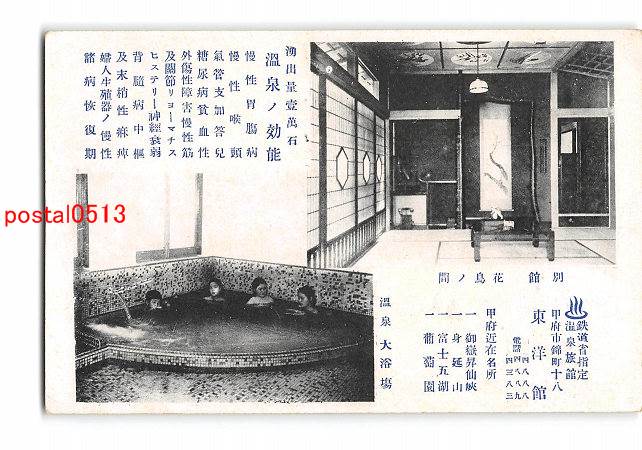 湧出量壹萬石
溫泉ノ効能
慢性胃腸病
慢性喉頭
氣管支加答兒
糖尿病貧血性
外傷性障害慢性筋
及關節リヨーマチス
ヒステリー神經衰弱
脊髓病中樞
及末梢性痲痺
婦人生殖器ノ慢性
諸病恢復期
別館 花鳥ノ間
溫泉大浴場
鉄道省指定
温泉旅館
甲府市錦町十八
東洋館
電話 四八八八
四八八九
四三八三
甲府近在名所
一 御嶽昇仙峽
一 身延山
一 富士五湖
一 葡萄園
postal0513